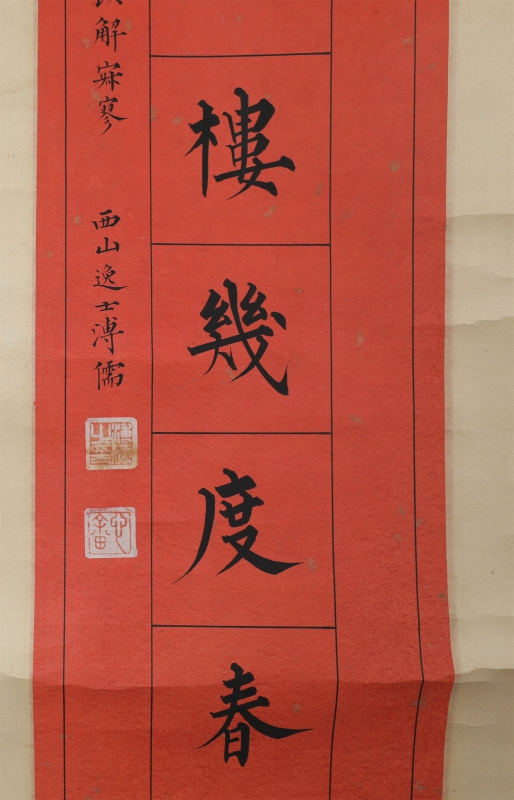 樓幾度春
解寂寥
西山逸士溥儒